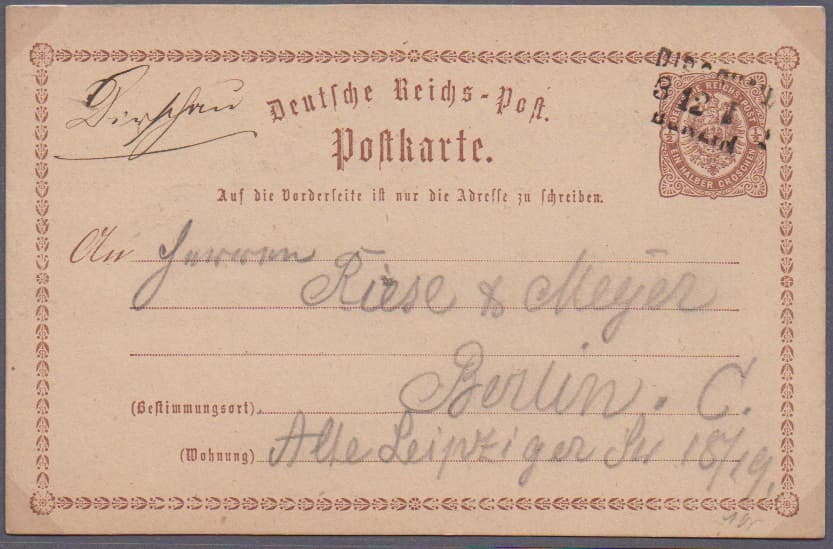 Dirschau
Deutsche Reichs-Post.
Postkarte.
Auf die Vorderseite ist nur die Adresse zu schreiben.
DIRSCHAU
3 12 I
BERLIN
REICHS POST
EIN HALBER GROSCHEN
An Herren
Riese & Meyer
Berlin. C.
(Bestimmungsort)
(Wohnung) Alte Leipziger Str 18/19.